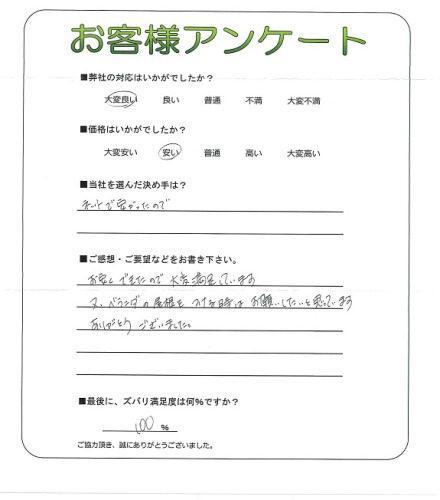 お客様アンケート
■弊社の対応はいかがでしたか？
大変良い 良い 普通 不満 大変不満
■価格はいかがでしたか？
大変安い 安い 普通 高い 大変高い
■当社を選んだ決め手は？
ネットで安かったので
■ご感想・ご要望などをお書き下さい。
お安くできたので大変満足しています
又、ベランダの屋根をつける時はお願いしたいと思っています
ありがとうございました。
■最後に、ズバリ満足度は何％ですか？
100 ％
ご協力頂き、誠にありがとうございました。